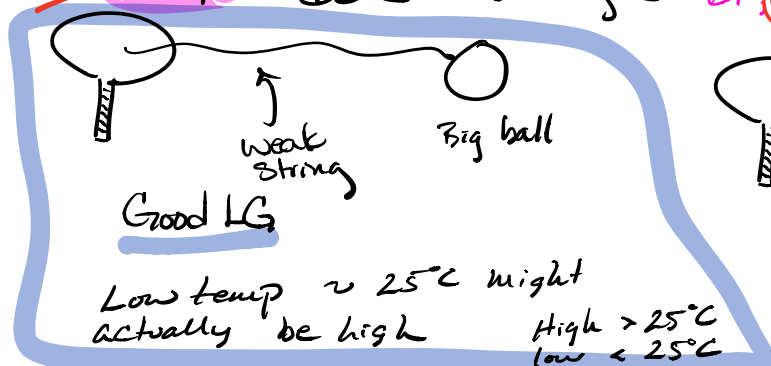 weak
string
Big ball
Good LG
Low temp ~ 25°C might
actually be high
High > 25°C
low < 25°C